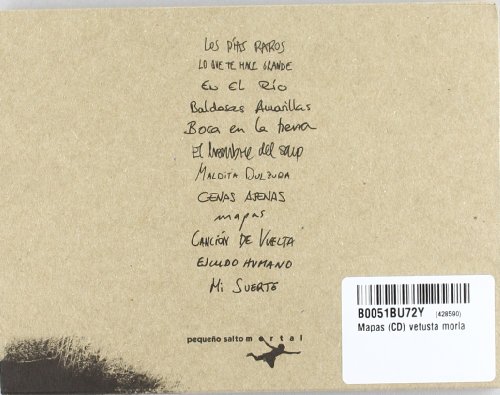 LOS DÍAS RAROS
LO QUE TE HACE GRANDE
EN EL RÍO
Baldosas Amarillas
Boca en la tierra
El hombre del saco
MALDITA DULZURA
CENAS AJENAS
mapas
CANCIÓN DE VUELTA
ESCUDO HUMANO
MI SUERTE
pequeño salto mortal
B0051BU72Y (428590)
Mapas (CD) vetusta morla